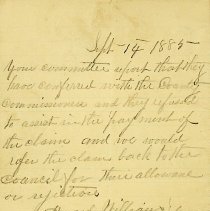 Sept 14 1885
Your committee report that they
have confered with the County
Commissioners and they refused
to assist in the payment of
the claim and we would
refer the claim back to the
Council for their allowance
or rejection